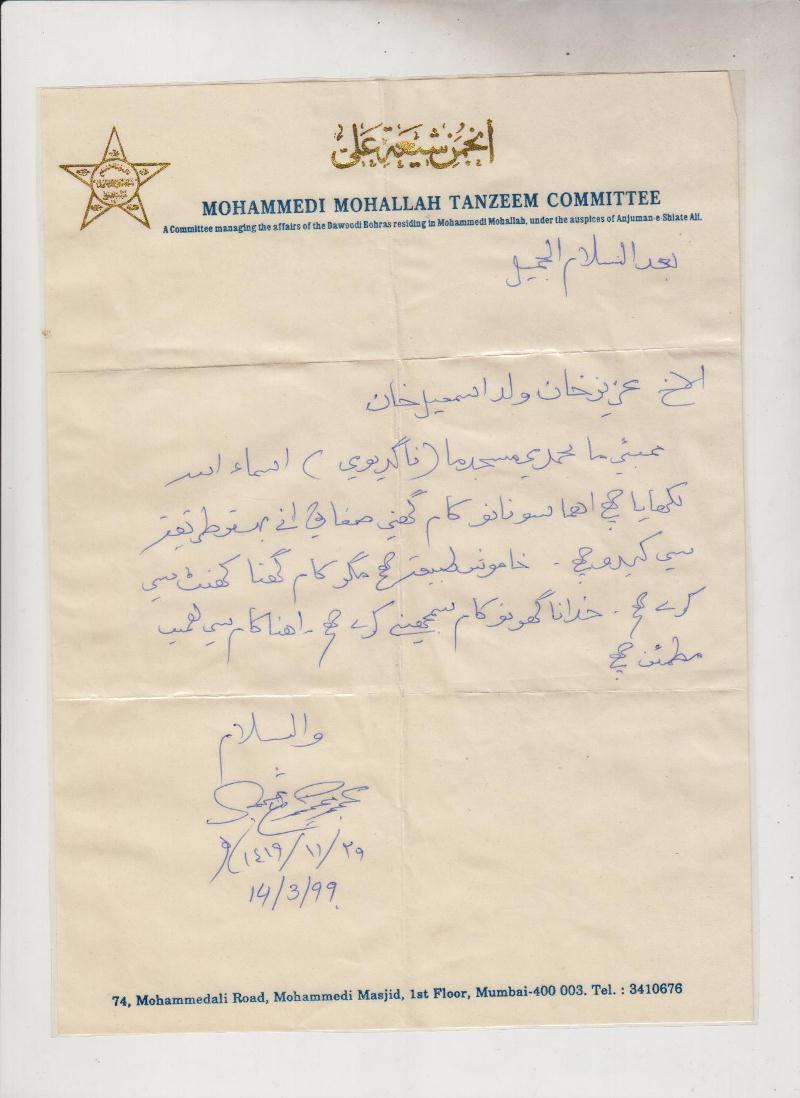 انجمن شيعة علي
MOHAMMEDI MOHALLAH TANZEEM COMMITTEE
A Committee managing the affairs of the Dawoodi Bohras residing in Mohammedi Mohallah, under the auspices of Anjuman-e-Shiate Ali.
بعد السلام الجميل
الاخ عزيز خان ولد اسمعيل خان
ممبئي ما محمدي مسجد ما (ناگديوي) اسماء الله
لكهايا چھے اهما سونا نو كام گهني صفائي انے بهتر طريقة
سي كيدو چھے . خاموش طبيعة چھے مگر كام گهنا كهنت سي
كرے چھے . خدا نا گهر نو كام سمجهينے كرے چھے . اهنا كام سي هميں
مطمئن چھے
والسلام
١٤١٩/١١/٢٥
14/3/99
74, Mohammedali Road, Mohammedi Masjid, 1st Floor, Mumbai-400 003. Tel. : 3410676